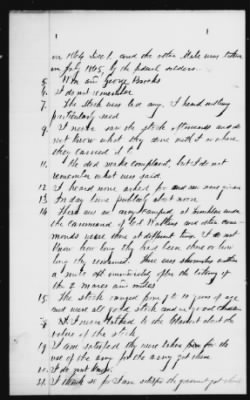 in 1864 Dec 1. and the other Mule was taken
in July 1865, by the federal soldiers.
5. Wm and George Brooks
6. I do not remember
7. The stock was led away. I heard nothing
particularly said
9. I never saw the stock afterwards and do
not know what they done with it or where
they carried it to
11. He did make complaint, but I do not
remember what was said.
12. I heard none asked for and no none given
13. In day time publicly about noon
14. There was an army encamped at
the command of Col. and other
were there at different times. I do not
know how long they had been there or how
long they remained. There was skirmishes within
a mile off immediately after the taking of
the 2 mares and mules
15. The stock ranged from 8 to 10 years of age
and were all good stock and in good condition
I never talked to the Claimant about the
value of the stock
19. I am satisfied they were taken for the
use of the army for the army got them.
20. I do not know.
21. I think so for I am satisfied the government got them